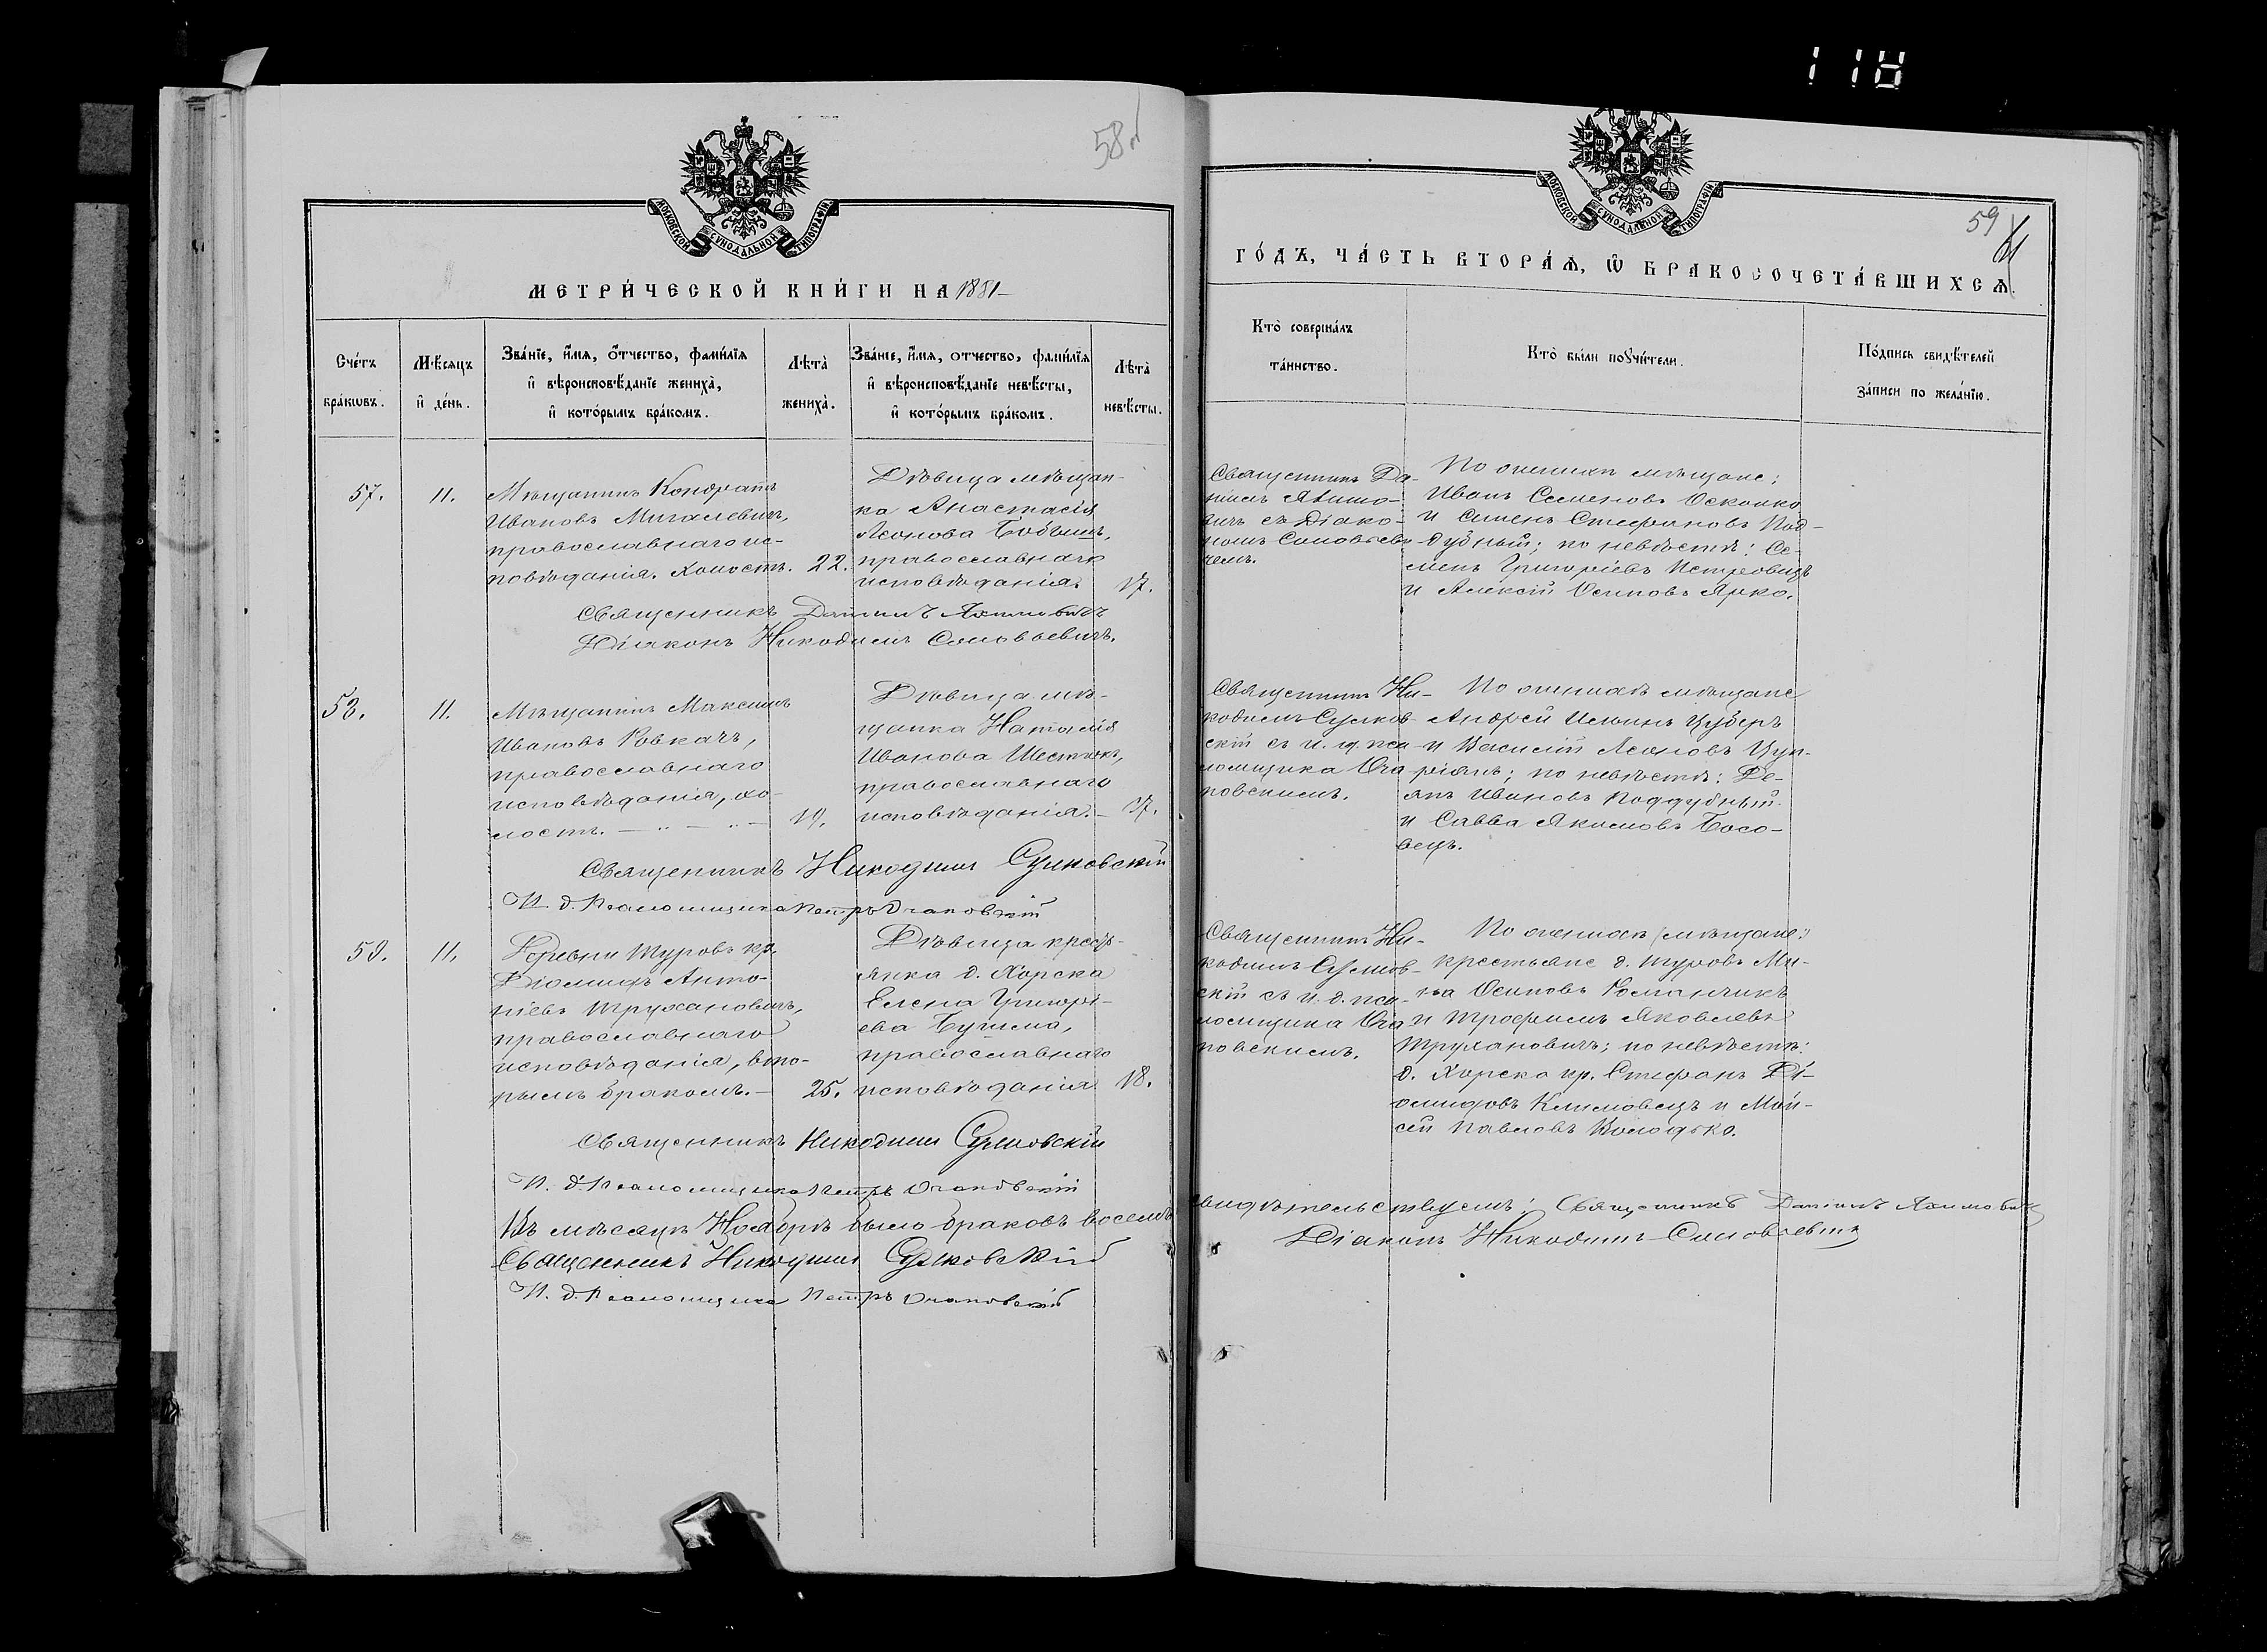 118
58
МОСКОВСКОЙ СУНОДАЛЬНОЙ ТИПОГРАФІИ
МЕТРИ́ЧЕСКОЙ КНИ́ГИ НА 1881
Сче́тъ бра́ковъ.
Мѣ́сяцъ и҆ де́нь.
Зва́нїе, и҆́мя, ѻ҆́тчество, фами́лїя
и҆ вѣроисповѣ́данїе жениха̀,
и҆ кото́рымъ бра́комъ.
Лѣта̀ жениха̀.
Зва́нїе, и҆́мя, отчество, фами́лїя
и҆ вѣроисповѣ́данїе невѣ́сты,
и҆ кото́рымъ бра́комъ.
Лѣта̀ невѣ́сты.
57.
11.
Мѣщанинъ Кондратъ
Ивановъ Мигалевичъ,
православнаго ис-
повѣданія. холостъ.
22.
Дѣвица мѣщан-
ка Анастасія
Леонова
православнаго
исповѣданія.
17.
Священникъ Даніилъ Яхимовичъ
Діаконъ Никодимъ Соловьевичъ.
58.
11.
Мѣщанинъ Максимъ
Ивановъ Ровкачъ,
православнаго
исповѣданія, хо-
лостъ.
19.
Дѣвица мѣ-
щанка Наталія
Иванова Шестакъ,
православнаго
исповѣданія.
17.
Священникъ Никодимъ Сулковскій
И. д. Псаломщика Петръ Очаповскій
59.
11.
Деревни Туровъ кр.
Діомидъ Анто-
ніевъ Трухановичъ,
православнаго
исповѣданія, вто-
рымъ бракомъ.
25.
Дѣвица кресть-
янка д. Хорска
Елена Григорі-
ева
православнаго
исповѣданія
18.
Священникъ Никодимъ Сулковскій
И. д. Псаломщика Петръ Очаповскій
Въ мѣсяцѣ Ноябрѣ было браковъ восемь
Священникъ Никодимъ Сулковскій
И. д. Псаломщика Петръ Очаповскій
59
МОСКОВСКОЙ СУНОДАЛЬНОЙ ТИПОГРАФІИ
ГО́ДЪ, ЧА́СТЬ ВТОРА́Я, Ѡ҆ БРАКОСОЧЕТА́ВШИХСЯ.
Кто̀ соверша́лъ та́инство.
Кто̀ бы́ли поꙋчи́тели.
По́дпись свидѣ́телей за́писи по жела́нїю.
Священникъ Да-
ніилъ Яхимо-
вичъ съ Діако-
номъ Соловьеви-
чемъ.
По женихѣ мѣщане:
Иванъ Семеновъ Осконко
и Сименъ Стефановъ Под-
дубный; по невѣстѣ: Се-
менъ Григоріевъ Петровецъ
и Алексій Осиповъ Ярко.
Священникъ Ни-
кодимъ Сулков-
скій съ и. д. пса-
ломщика Оча-
повскимъ.
По женихѣ мѣщане
Андрей Ильинъ Цуберъ
и Василій Леоновъ Цуп-
ріянъ; по невѣстѣ: Де-
янъ Ивановъ Поддубный
и Савва Якимовъ Босо-
вецъ.
Священникъ Ни-
кодимъ Сулков-
скій съ и. д. пса-
ломщика Оча-
повскимъ.
По женихѣ (мѣщане:)
крестьяне д. Туровъ Ми-
на Осиповъ Романчикъ
и Трофимъ Яковлевъ
Трухановичъ; по невѣстѣ:
д. Хорска кр. Стефанъ Ді-
омидовъ Климовецъ и Мои-
сей Павловъ Володько.
свидѣтельствуемъ: Священникъ Даніилъ Яхимовичъ
Діаконъ Никодимъ Соловьевичъ